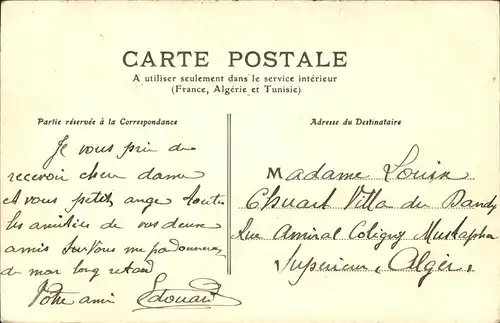 CARTE POSTALE
A utiliser seulement dans le service intérieur
(France, Algérie et Tunisie)
Partie réservée à la Correspondance
Adresse du Destinataire
Je vous prie de
recevoir cher dame
et vous petit ange toutes
les amitiés de vos deux
amis vous me pardonnerez
de mon long retard
Votre ami Edouard
Madame Louis
Chuart Villa du Dandy
Rue Amiral Coligny Mustapha
Supérieur, Alger,